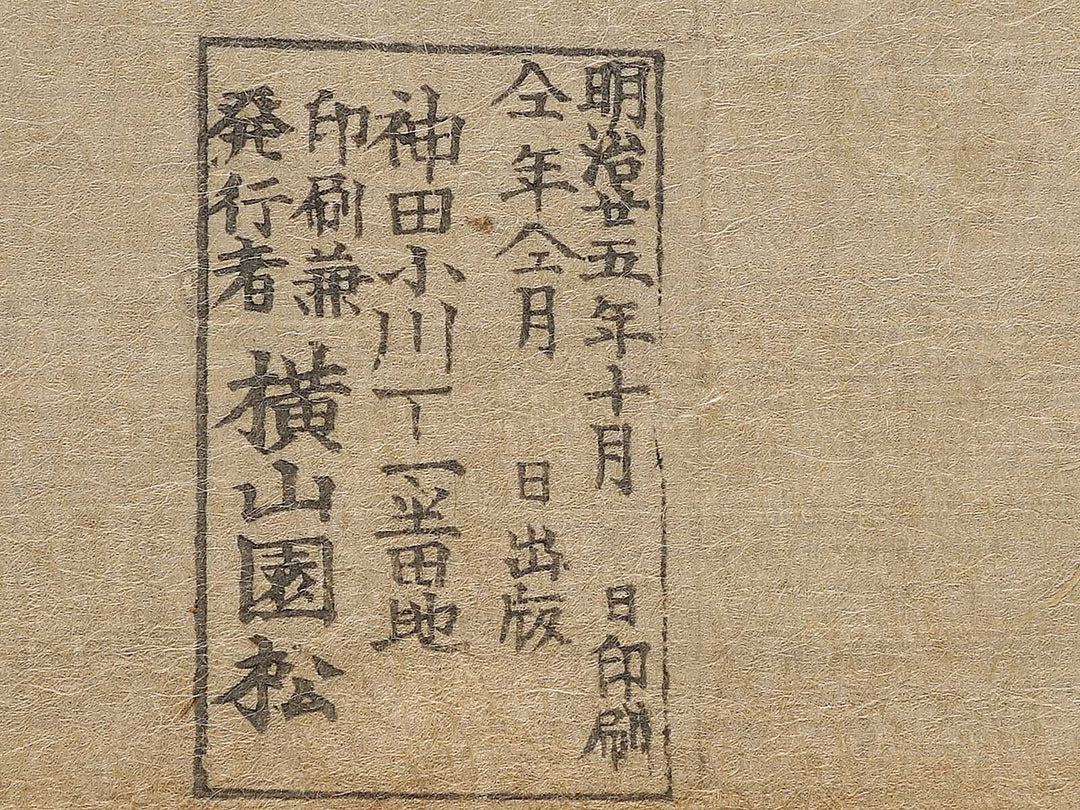 明治廿五年十月 日印刷
仝年仝月 日出版
神田小川丁一番地
印刷兼
発行者 横山園松